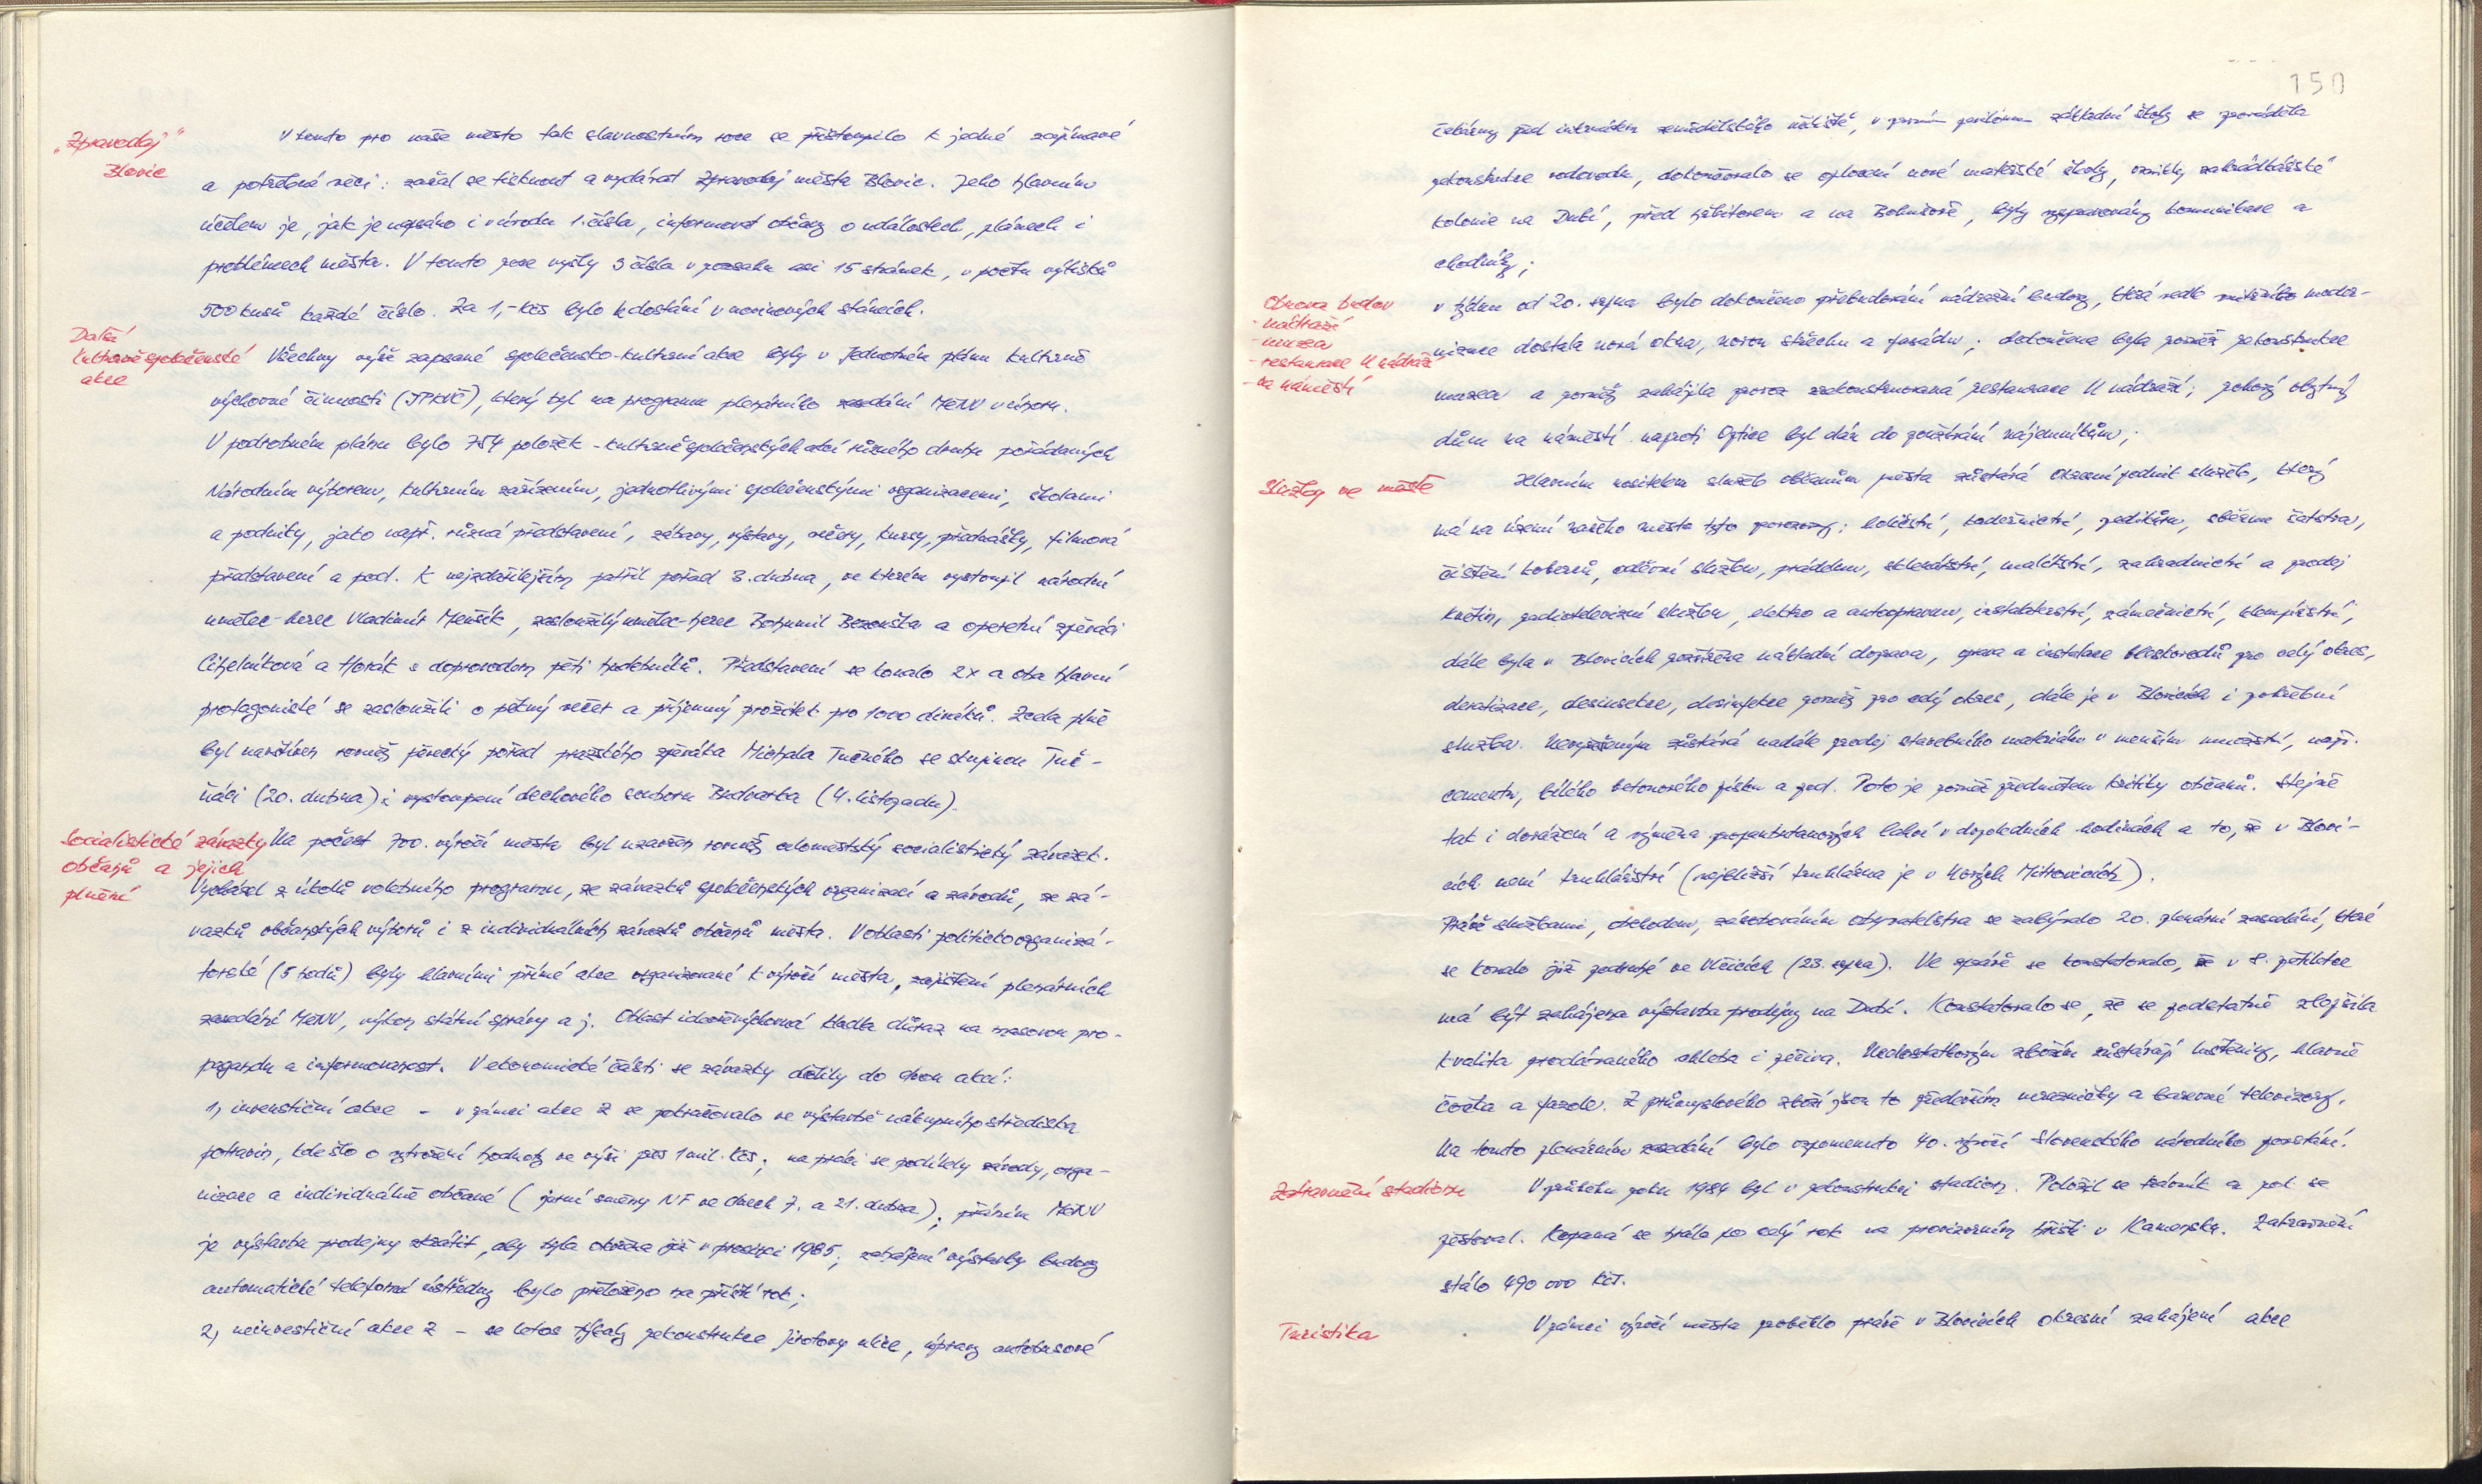 „Zpravodaj“
Blovic
V tomto pro naše město tak slavnostním roce se přistoupilo k jedné zajímavé
a potřebné věci: začal se tisknout a vydávat Zpravodaj města Blovic. Jeho hlavním
účelem je, jak je napsáno i v úvodu 1. čísla, informovat občany o událostech, plánech i
problémech města. V tomto roce vyšly 3 čísla v rozsahu asi 15 stránek, v počtu výtisků
500 kusů každé číslo. Za 1,- Kčs bylo k dostání v novinových stáncích.
Další
kulturně společenské
akce
Všechny výše zapsané společensko-kulturní akce byly v Jednotném plánu kulturně
výchovné činnosti (JPKVČ), který byl na programu plenárního zasedání MěNV v únoru.
V podrobném plánu bylo 754 položek - kulturně společenských akcí různého druhu pořádaných
Národním výborem, kulturním zařízením, jednotlivými společenskými organizacemi, školami
a podniky, jako např. různá představení, zábavy, výstavy, večery, kursy, přednášky, filmová
představení a pod. K nejzdařilejším patřil pořad 3. dubna, ve kterém vystoupil národní
umělec - herec Vladimír Menšík, zasloužilý umělec - herec Bohumil Bezouška a operetní zpěváci
Cihelníková a Horák s doprovodem pěti hudebníků. Představení se konalo 2x a oba hlavní
protagonisté se zasloužili o pěkný večer a příjemný prožitek pro 1000 diváků. Zcela plně
byl navštíven rovněž pěvecký pořad pražského zpěváka Michala Tučného se skupinou Tuč-
ňáci (20. dubna) i vystoupení dechového souboru Budvarka (4. listopadu).
Socialistické závazky
občanů a jejich
plnění
Na počest 700. výročí města byl uzavřen rovněž celoměstský socialistický závazek.
Vycházel z úkolů volebního programu, ze závazků společenských organizací a závodů, ze zá-
vazků občanských výborů i z individuálních závazků občanů města. V oblasti politickoorganizá-
torské (5 bodů) byly hlavními přímé akce organizované k výročí města, zajištění plenárních
zasedání MěNV, výkon státní správy a j. Oblast ideověvýchovná kladla důraz na masovou pro-
pagandu a informovanost. V ekonomické části se závazky dělily do dvou akcí:
1, investiční akce - v rámci akce Z se pokračovalo ve výstavbě nákupního střediska
potravin, kde šlo o vytvoření hodnoty ve výši přes 1 mil. Kčs; na práci se podílely závody, orga-
nizace a individuálně občané (jarní směny NF ve dnech 7. a 21. dubna), přáním MěNV
je výstavbu prodejny zkrátit, aby byla otevřena již v prosinci 1985; zahájení výstavby budovy
automatické telefonní ústředny bylo přeloženo na příští rok;
2, neinvestiční akce Z - se letos týkaly rekonstrukce Jirotovy ulice, úpravy autobusové
150
čekárny před internátem zemědělského učiliště, v prvním pavilónu základní školy se prováděla
rekonstrukce vodovodu, dokončovalo se oplocení nové mateřské školy, vznikly zahrádkářské
kolonie na Dubí, před hřbitovem a na Bohušově, byly vyspravovány komunikace a
chodníky;
Obnova budov
- nádraží
- muzea
- restaurace U nádraží
- na náměstí
v týdnu od 20. srpna bylo dokončeno přebudování nádražní budovy, která vedle vnitřního moder-
nizace dostala nová okna, novou střechu a fasádu; dokončena byla rovněž rekonstrukce
muzea a rovněž zahájila provoz zrekonstruovaná restaurace U nádraží; rohový obytný
dům na náměstí naproti Optice byl dán do užívání nájemníkům;
Služby ve městě
Hlavním nositelem služeb občanům města zůstává Okresní podnik služeb, který
má na území našeho města tyto provozovny: holičství, kadeřnictví, pedikúru, sběrnu šatstva,
čištění koberců, oděvní službu, prádelnu, sklenářství, malířství, zahradnictví a prodej
květin, radiotelevizní službu, elektro a autoopravnu, instalatérství, zámečnictví, klempířství;
dále byla v Blovicích rozšířena nákladní doprava, oprava a instalace bleskosvodů pro celý okres,
deratizace, desinsekce, desinfekce rovněž pro celý okres, dále je v Blovicích i pohřební
služba. Nevyřešeným zůstává nadále prodej stavebního materiálu v menším množství, např.
cementu, bílého betonového písku a pod. Toto je rovněž předmětem kritiky občanů. Stejně
tak i dovážení a výměna propanbutanových lahví v dopoledních hodinách a to, že v Blovi-
cích není truhlářství (nejbližší truhlárna je v Nových Mitrovicích).
Právě službami, obchodem, zásobováním obyvatelstva se zabývalo 20. plenární zasedání, které
se konalo již podruhé ve Vlčicích (23. srpna). Ve zprávě se konstatovalo, že v 8. pětiletce
má být zahájena výstavba prodejny na Dubí. Konstatovalo se, že se podstatně zlepšila
kvalita prodávaného chleba i pečiva. Nedostatkovým zbožím zůstávají luštěniny, hlavně
čočka a fazole. Z průmyslového zboží jsou to především mrazničky a barevné televizory.
Na tomto plenárním zasedání bylo vzpomenuto 40. výročí Slovenského národního povstání.
Zatravnění stadionu
V průběhu roku 1984 byl v rekonstrukci stadion. Položil se trávník a pak se
pěstoval. Kopaná se hrála po celý rok na provizorním hřišti v Kamensku. Zatravnění
stálo 490 000 Kčs.
Turistika
V rámci výročí města proběhlo právě v Blovicích okresní zahájení akce